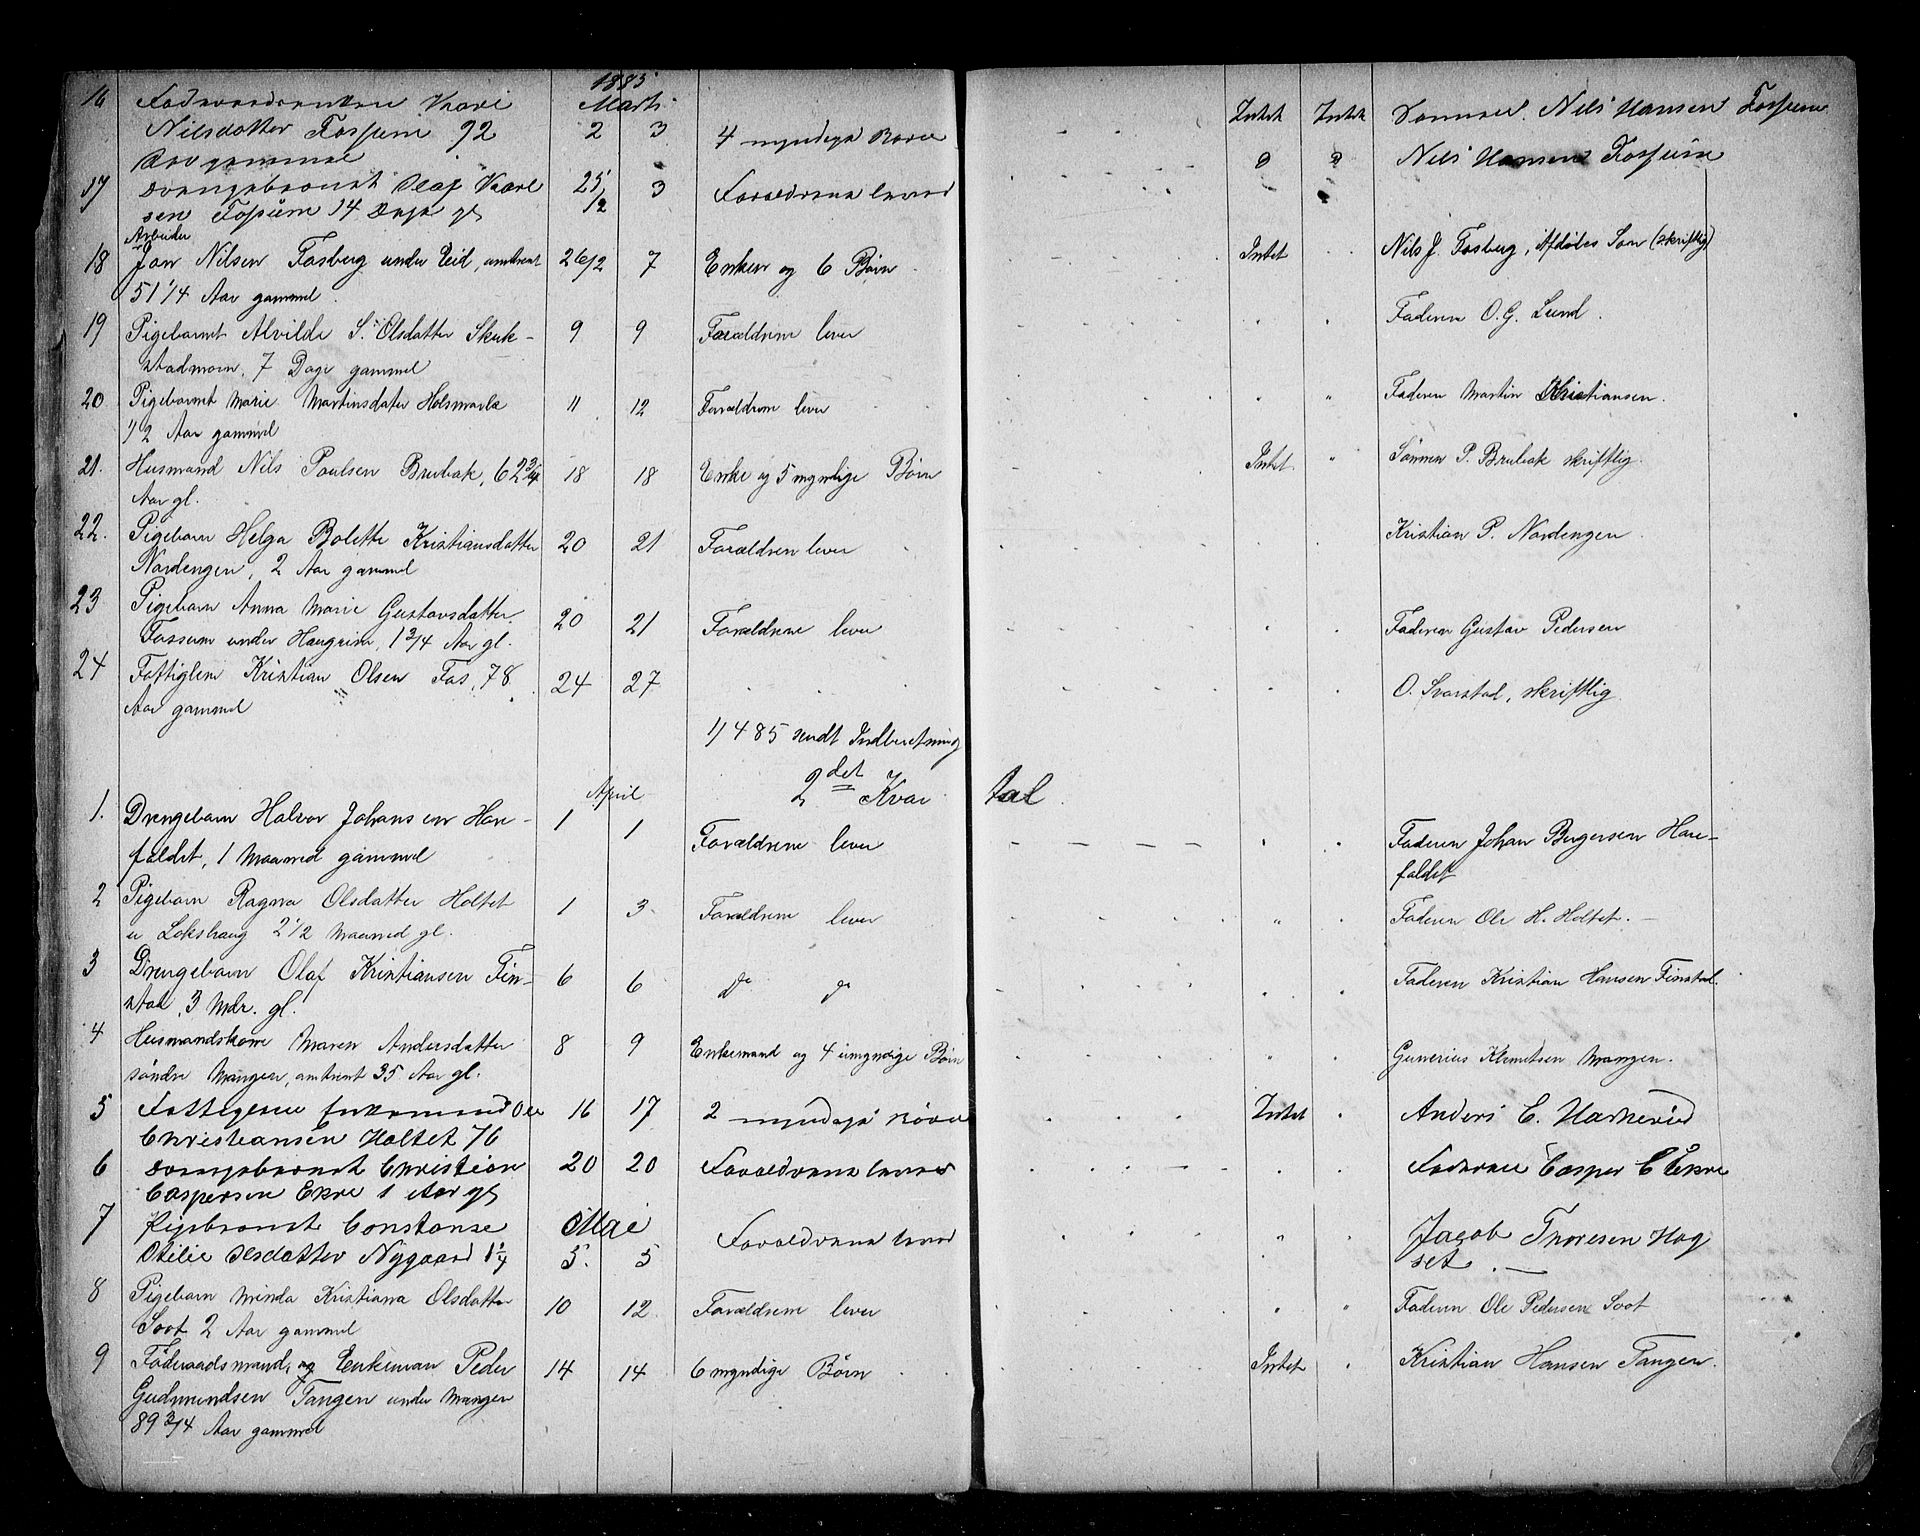 1885
Marts
16 Kari 2 3 4 myndige Børn Intet Intet Sønnen Nils Hansen Fossum
Nilsdatter Fossum 92
Aar gammel Nils Hansen Fossum
17 Drengebarnet Olaf Karl 25/2 3 Forældrene lever
sen Fossum 14 Dage gl
Arbeider
18 Jon Nilsen Fosberg under Eid, omtrent 26/2 7 Enken og 6 Børn Intet Nils J. Fosberg, Afdødes Søn (skriftlig)
51 1/4 Aar gammel.
19 Pigebarnet Alvilde S. Olsdatter Skuk- 9 9 Forældrene lever Faderen O. G. Lund.
stadmoen, 7 Dage gammel
20 Pigebarnet Marie Martinsdater 11 12 Forældrene lever " Faderen Martin Kristiansen.
1/2 Aar gammel
21. Husmand Nils Paulsen Brubak, 62 3/4 18 18 Enke og 5 myndige Børn Intet " Sønnen P. Brubak skriftlig.
Aar gl.
22. Pigebarn Helga Bolette Kristiansdatter 20 21 Forældrene lever Kristian P. Nordengen
Nordengen, 2 Aar gammel
23 Pigebarn Anna Marie Gustavsdatter 20 21 Forældrene lever Faderen Gustav Pedersen
Fossum under Haugrim, 1 3/4 Aar gl.
24 Fattiglem Kristian Olsen Fos, 78 24 27 O. Svarstad, skriftlig
Aar gammel
1/4 85 sendt Indberetning
2det Kvar tal
April
1. Drengebarn Halvor Johansen Hare- 1 1 Forældrene lever Faderen Johan Bergersen Hare-
faldet, 1 Maaned gammel faldet
2 Pigebarn Ragna Olsdatter Holtet 1 3 Forældrene lever " Faderen Ole H. Holtet.
u Lokshaug 2 1/2 Maaned gl.
3 Drengebarn Olaf Kristiansen Fin- 6 6 do do Faderen Kristian Hansen Finstad.
stad, 3 Mdr. gl.
4 Husmandskone Maren Andersdatter 8 9 Enkemand og 4 umyndige Børn " Gunerius Klemitsen Mangen.
søndre Mangen, omtrent 35 Aar gl.
5 Enkemand Ole 16 17 2 myndige Børn Intet Anders C. Harkerud
Christiansen Holtet 76
6 Drengebarnet Christian 20 20 Forældrene lever Faderen Casper C Ekre
Caspersen Ekre 1 Aar gl
7 Pigebarnet Constanse Mai Forældrene lever " Jacob Thoresen Hog
Otilie Olsdatter Nygaard 1 1/4 5. 5 set.
8 Pigebarn Minda Kristiana Olsdatter 10 12 Forældrene lever " " Faderen Ole Pedersen Soot
Soot 2 Aar gammel
9 Føderaadsmand og Enkeman Peder 14 14 6 myndige Børn Intet Kristian Hansen Tangen.
Gudmundsen Tangen under Mangen
89 3/4 Aar gammel